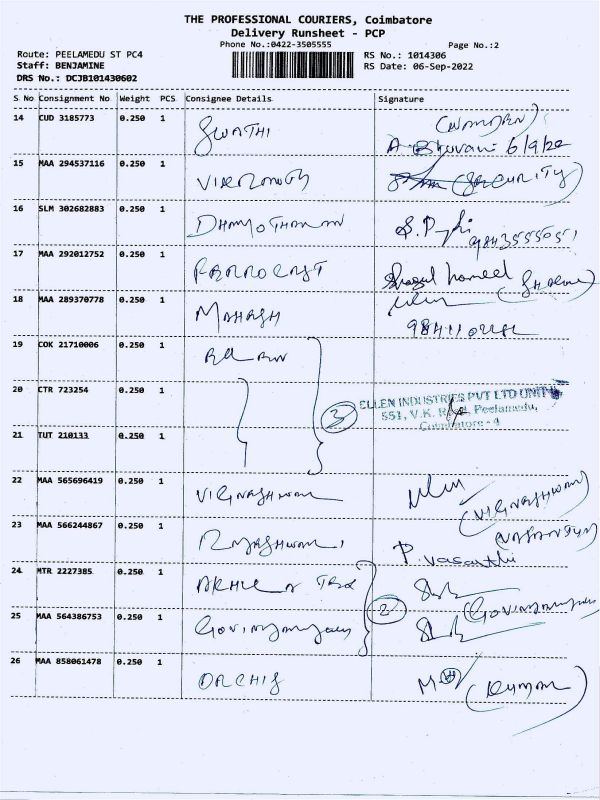 THE PROFESSIONAL COURIERS, Coimbatore
Delivery Runsheet - PCP
Phone No.:0422-3505555
Page No.:2
Route: PEELAMEDU ST PC4
Staff: BENJAMINE
DRS No.: DCJB101430602
RS No.: 1014306
RS Date: 06-Sep-2022
S No Consignment No Weight PCS Consignee Details Signature
14 CUD 3185773 0.250 1 SWATHI
A Bhuvani 6/9/22
15 MAA 294537116 0.250 1 (SECURITY)
16 SLM 302682883 0.250 1
17 MAA 292012752 0.250 1 hameed
18 MAA 289370778 0.250 1 MAHESH
19 COK 21710006 0.250 1
20 CTR 723254 0.250 1 3 ELLEN INDUSTRIES PVT LTD UNIT
551, V.K. Peelamedu,
Coimbatore - 4
21 TUT 210133 0.250 1
22 MAA 565696419 0.250 1 VIGNASHWAR
(VIGNASHWAR)
23 MAA 566244867 0.250 1 P. Vasanthi
24 MTR 2227385 0.250 1
2
25 MAA 564386753 0.250 1
26 MAA 858061478 0.250 1 ORCHIS (Kumar)